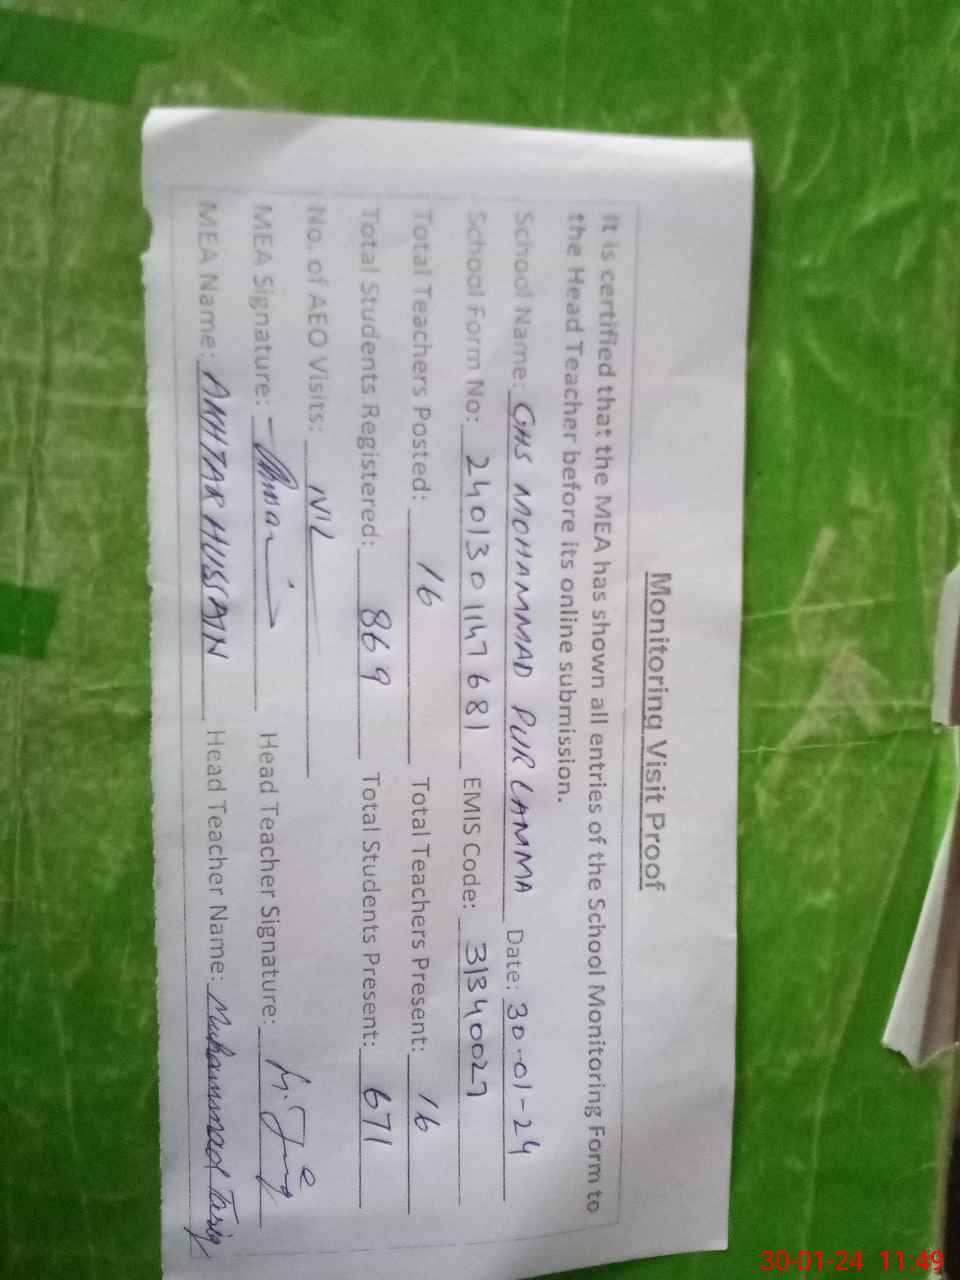 Monitoring Visit Proof
It is certified that the MEA has shown all entries of the School Monitoring Form to
the Head Teacher before its online submission.
School Name: GHS MOHAMMAD PUR LAMMA Date: 30-01-24
School Form No: 2401301147681 EMIS Code: 31340027
Total Teachers Posted: 16 Total Teachers Present: 16
Total Students Registered: 869 Total Students Present: 671
No. of AEO Visits: NIL
MEA Signature: Head Teacher Signature:
MEA Name: AKHTAR HUSSAIN Head Teacher Name: Muhammad Tariq
30-01-24 11:49